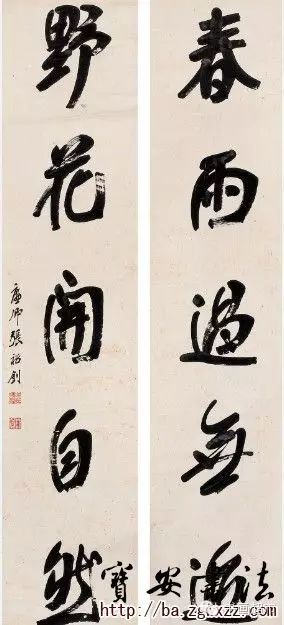 春雨過無
野花開自然
廉卿張裕釗
寶安
http://ba.zgxxzz.com